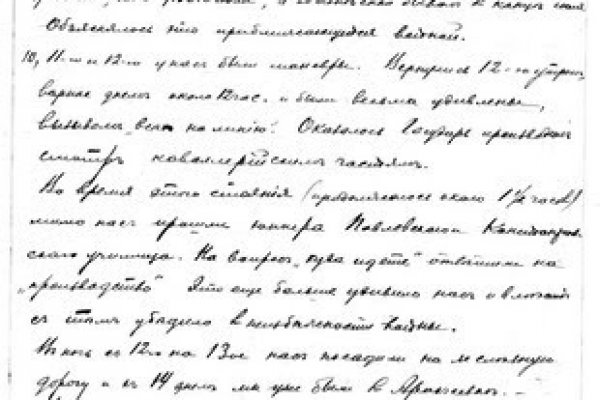 Объяснялось это приближающейся войной.
10, 11-го и 12-го у нас были маневры. Вернулись 12-го утром,
вернее днем около 12 час. и были весьма удивлены,
вызовом „всех на линию“. Оказалось Государь производит
смотр кавалерийским частям.
Во время этого стояния (продолжалось около 1½ часов)
мимо нас прошли юнкера Павловского
ского училища. На вопрос „куда идете“ отвечали на
„производство“ Это еще больше удивило нас и
с тем убедило в неизбежности войны.
В ночь с 12го на 13ое нас посадили на железную
дорогу и 14 днем мы уже были в